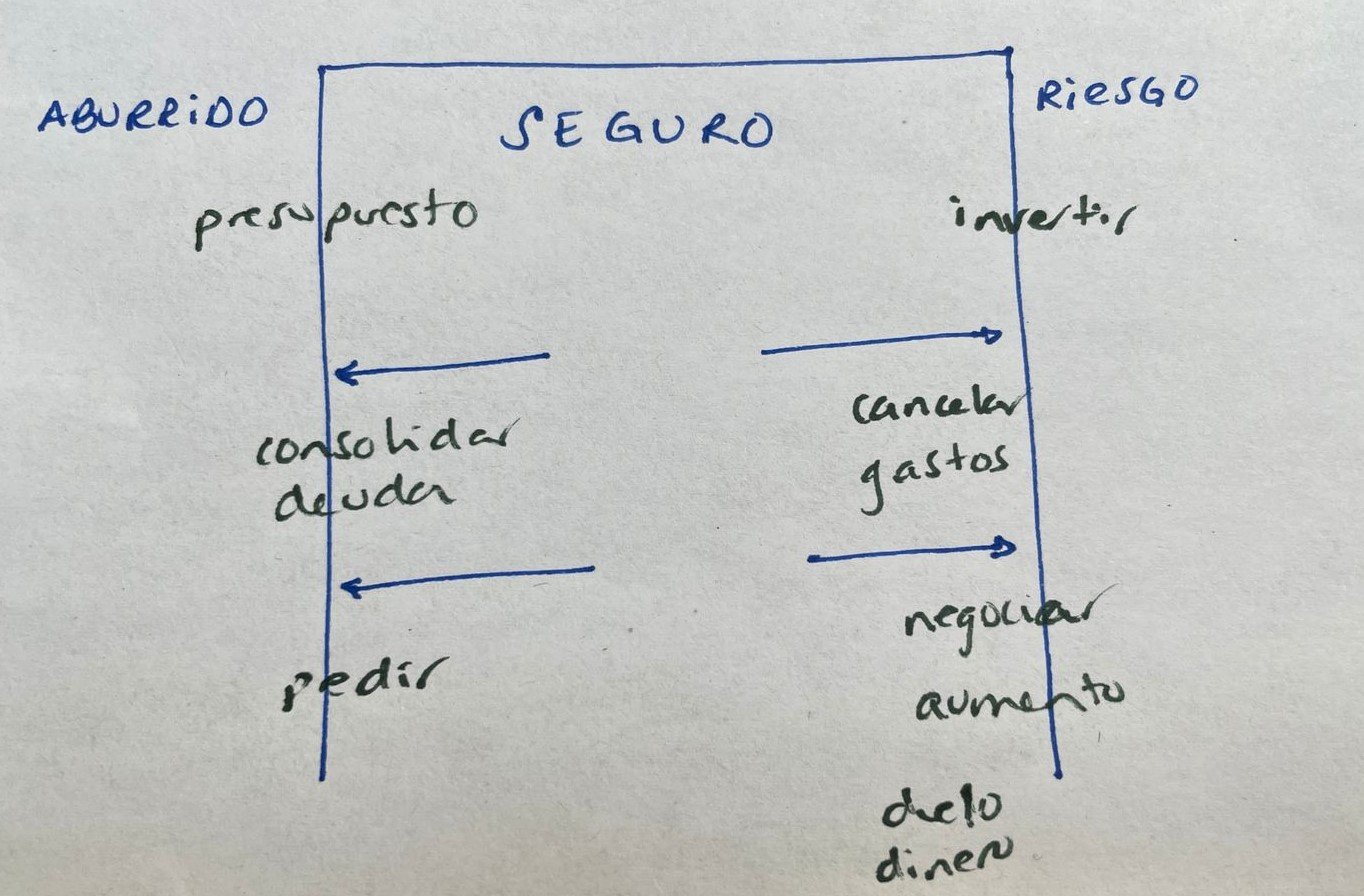 ABURRIDO
SEGURO
RIESGO
presupuesto
invertir
cancelar
gastos
consolidar
deuda
negociar
aumento
pedir
duelo
dinero